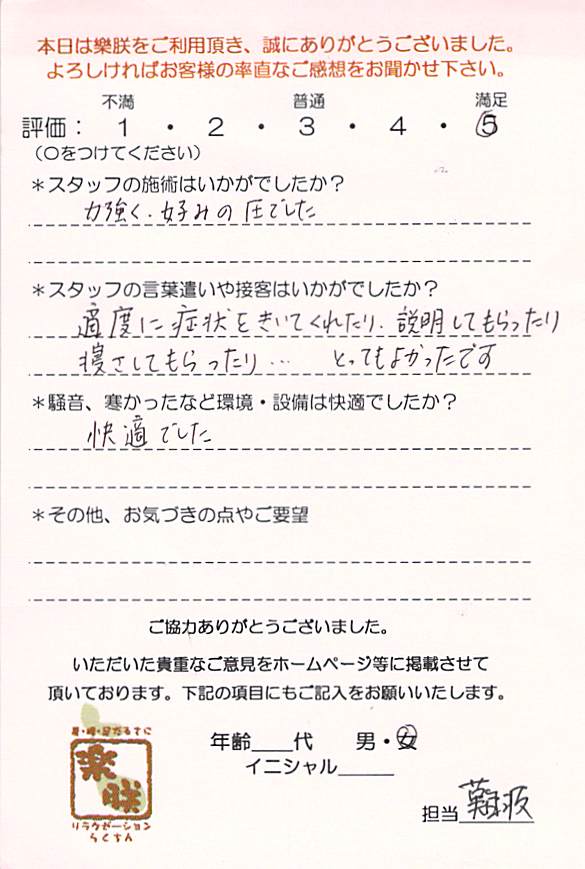 本日は樂朕をご利用頂き、誠にありがとうございました。
よろしければお客様の率直なご感想をお聞かせ下さい。
不満 普通 満足
評価： 1 ・ 2 ・ 3 ・ 4 ・ 5
（○をつけてください）
＊スタッフの施術はいかがでしたか？
力強く、好みの圧でした
＊スタッフの言葉遣いや接客はいかがでしたか？
適度に症状をきいてくれたり、説明してもらったり
寝さしてもらったり… とってもよかったです
＊騒音、寒かったなど環境・設備は快適でしたか？
快適でした
＊その他、お気づきの点やご要望
ご協力ありがとうございました。
いただいた貴重なご意見をホームページ等に掲載させて
頂いております。下記の項目にもご記入をお願いいたします。
年齢____代 男・女
イニシャル______
樂朕
リラクゼーション
らくちん
担当